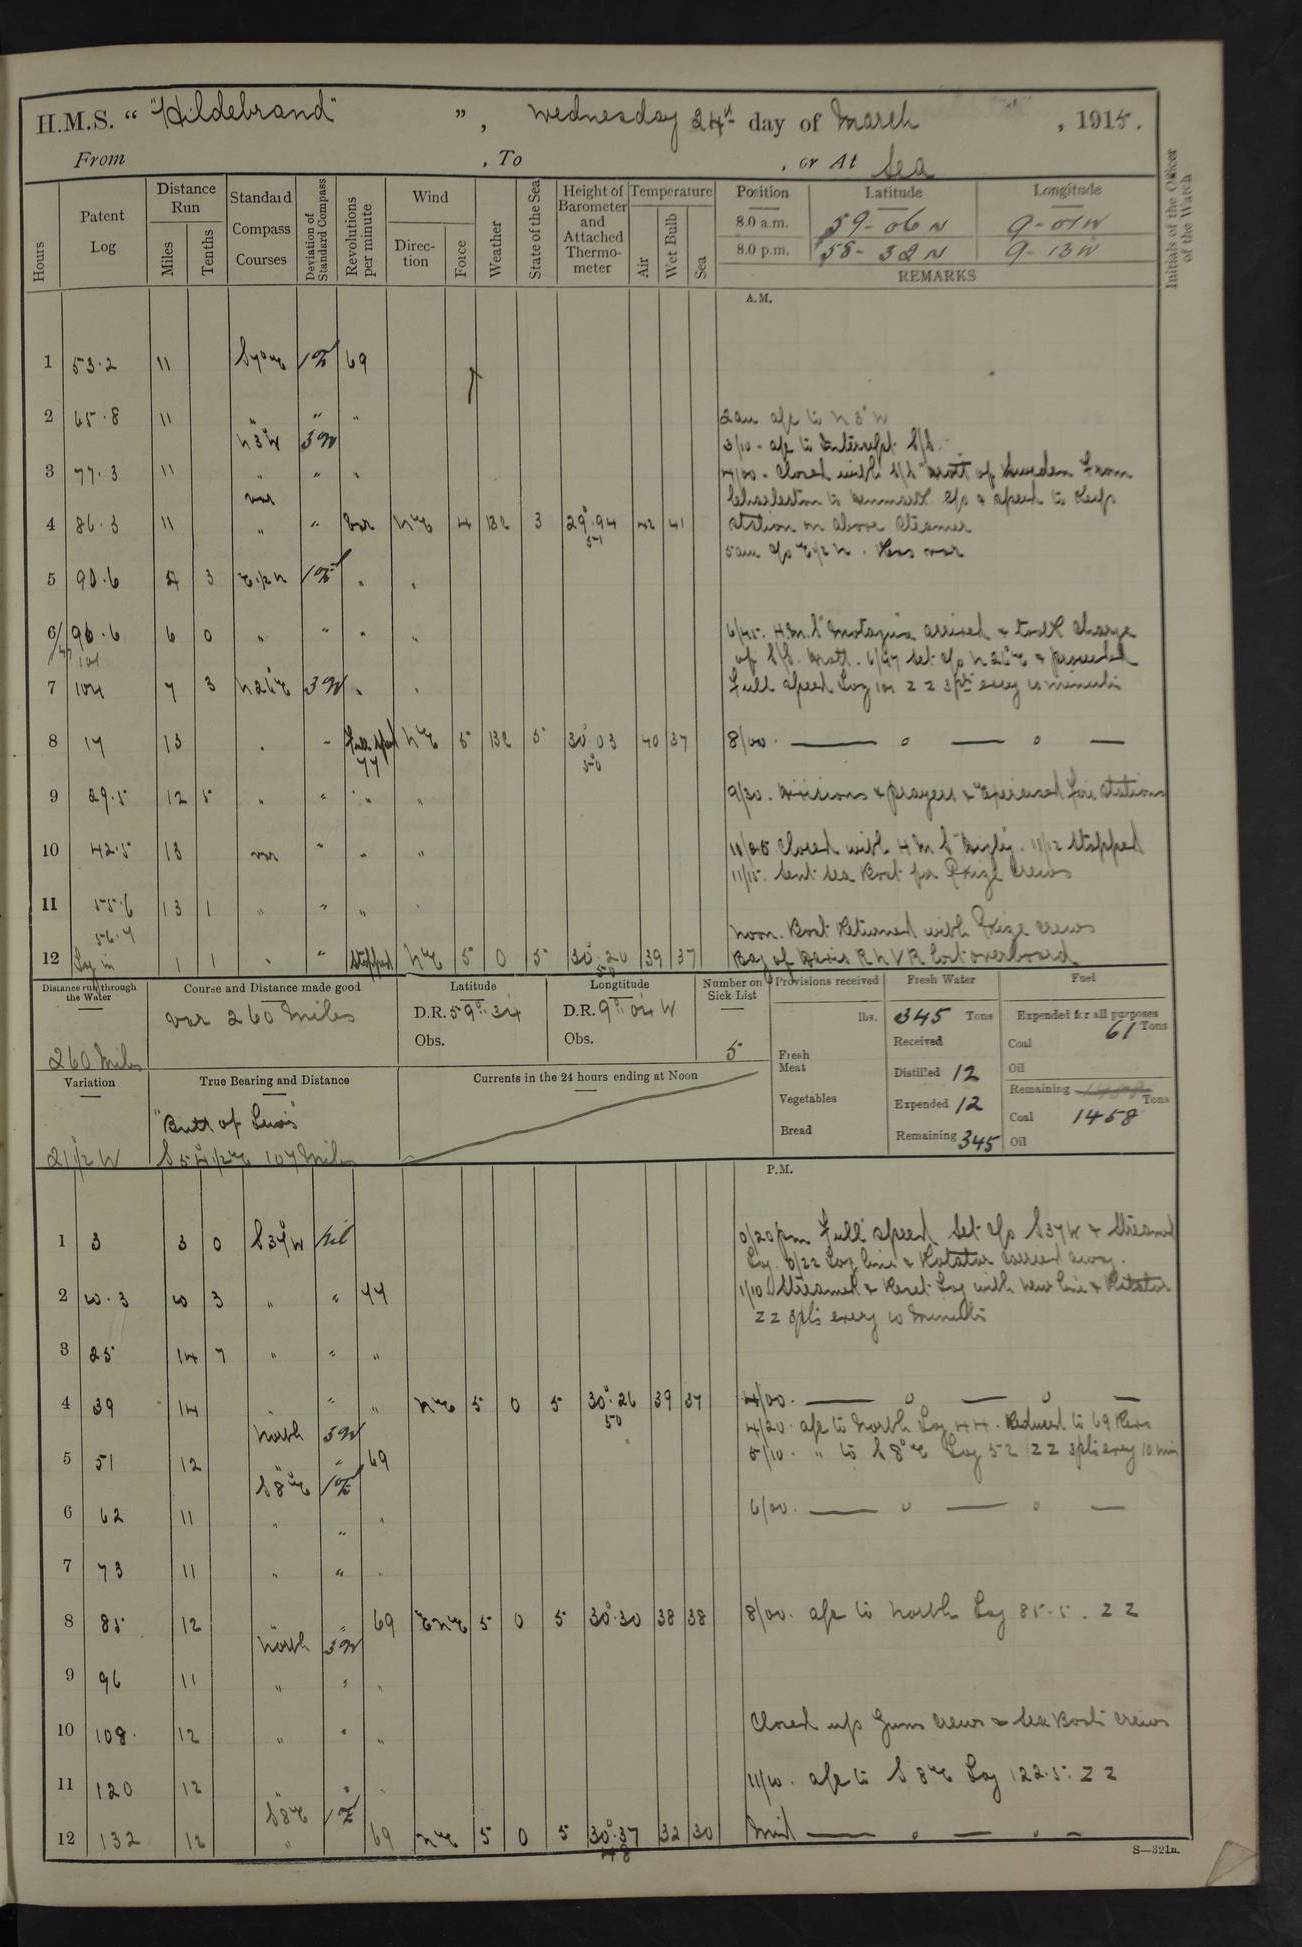 H.M.S. " "Hildebrand" ", Wednesday 24th day of March, 1915.
From , To , or At Sea
Hours
Patent Log
Distance Run
Miles
Tenths
Standard Compass Courses
Deviation of Standard Compass
Revolutions per minute
Wind
Direction
Force
Weather
State of the Sea
Height of Barometer and Attached Thermometer
Temperature
Air
Wet Bulb
Sea
Position Latitude Longitude
8.0 a.m. 59-06 N 9-01 W
8.0 p.m. 58-32 N 9-13 W
REMARKS
Initials of the Officer of the Watch
A.M.
1 53.2 11 S7°E 1°E 69
2 65.8 11 " " "
N3°W 3°W
2am a/c to N3°W
3/10 - a/c to Intercept S/S.
3 77.3 11 " " "
4/00 - Closed with S/S of Sweden from
var
Charleston to Denmark c/s & speed to Keep
4 86.3 11 " " Var NE 4 3 29.94 42 41
station on above steamer
5am c/o E1/2N. Revs var
5 90.6 4 3 E1/2N 1°E " "
6 96.6 6 0 " " " "
6/45. H.M.S arrived & took charge
of S/S. 6/47 set c/o N26°E & proceeded
7 104 7 3 N26°E 3°W " "
Full speed Log 101 ZZ 3pts every 10 minutes
8 17 13 " " Full speed 77 NE 5 5 30.03 50 40 37
8/00. — " — " —
9 29.5 12 5 " " " "
9/30. Divisions & prayers & Exercised fire stations
10 42.5 13 var " " "
Closed with H M S Digby. 11/12 Stopped
11/15. Sent Sea Boat for Prize Crews
11 55.6 13 1 " " " "
56.7
Noon. Boat Returned with Prize crews
12 Log in 1 1 " " Stopped NE 5 0 5 30.20 50 39 37
Bag of RNVR lost overboard
Distance run through the Water
260 Miles
Course and Distance made good
var 260 Miles
Latitude
D.R. 59° 34
Obs.
Longtitude
D.R. 9° 04 W
Obs.
Number on Sick List
5
Provisions received
lbs.
Fresh Meat
Vegetables
Bread
Fresh Water
345 Tons
Received
Distilled 12
Expended 12
Remaining 345
Fuel
Expended for all purposes
61 Tons
Coal
Oil
Remaining Tons
Coal 1458
Oil
Variation
21 1/2 W
True Bearing and Distance
"Butt of Lewis"
S 54 1/2 E 107 Miles
Currents in the 24 hours ending at Noon
P.M.
1 3 3 0 S37°W Nil
0/20pm Full speed Set c/o S37W & Streamed
Log. 0/22 Log line & Rotator carried away.
2 10.3 10 3 " " 77
1/10 Streamed & Reset Log with new line & Rotator
ZZ 3pts every 10 Minutes
3 25 14 7 " " "
4 39 14 " " " NE 5 0 5 30.26 50 39 37
4/00. — " — " —
North 3°W
4/20. a/c to North Log 44. Reduced to 69 Revs
5 51 12 " " 69
5/10. " to S8°E Log 52 ZZ 3pts every 10 min
S8°E 1°E
6 62 11 " " "
6/00. — " — " —
7 73 11 " " "
8 85 12 " " 69 ENE 5 0 5 30.30 38 38
8/00. a/c to North Log 85.5. ZZ
North 3°W
9 96 11 " " "
10 108. 12 " " "
Closed up Guns crews & Sea Boats crews
11 120 12 " "
11/10. a/c to S8°E Log 122.5. ZZ
S8°E 1°E
12 132 12 " 69 NE 5 0 5 30.37 48 32 30
Mid — " — " —
S—321a.